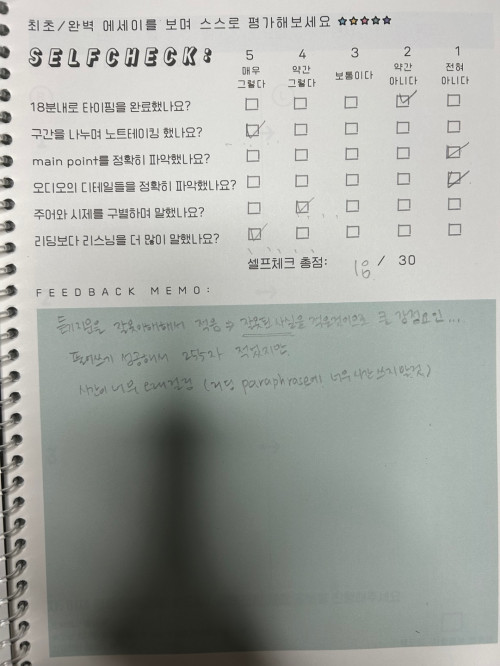 최초/완벽 에세이를 보며 스스로 평가해보세요
SELFCHECK:
5 4 3 2 1
매우 그렇다 약간 그렇다 보통이다 약간 아니다 전혀 아니다
18분내로 타이핑을 완료했나요?
구간을 나누며 노트테이킹 했나요?
main point를 정확히 파악했나요?
오디오의 디테일들을 정확히 파악했나요?
주어와 시제를 구별하며 말했나요?
리딩보다 리스닝을 더 많이 말했나요?
셀프체크 총점: 18 / 30
FEEDBACK MEMO:
듣기지문을 잘못이해해서 적음 → 잘못된 사실을 적을것이므로 큰 감점요인...
길게쓰기 성공해서 255자 적었지만
시간이 너무 오래걸림 (리딩 paraphrase에 너무 시간 쓰지말것)